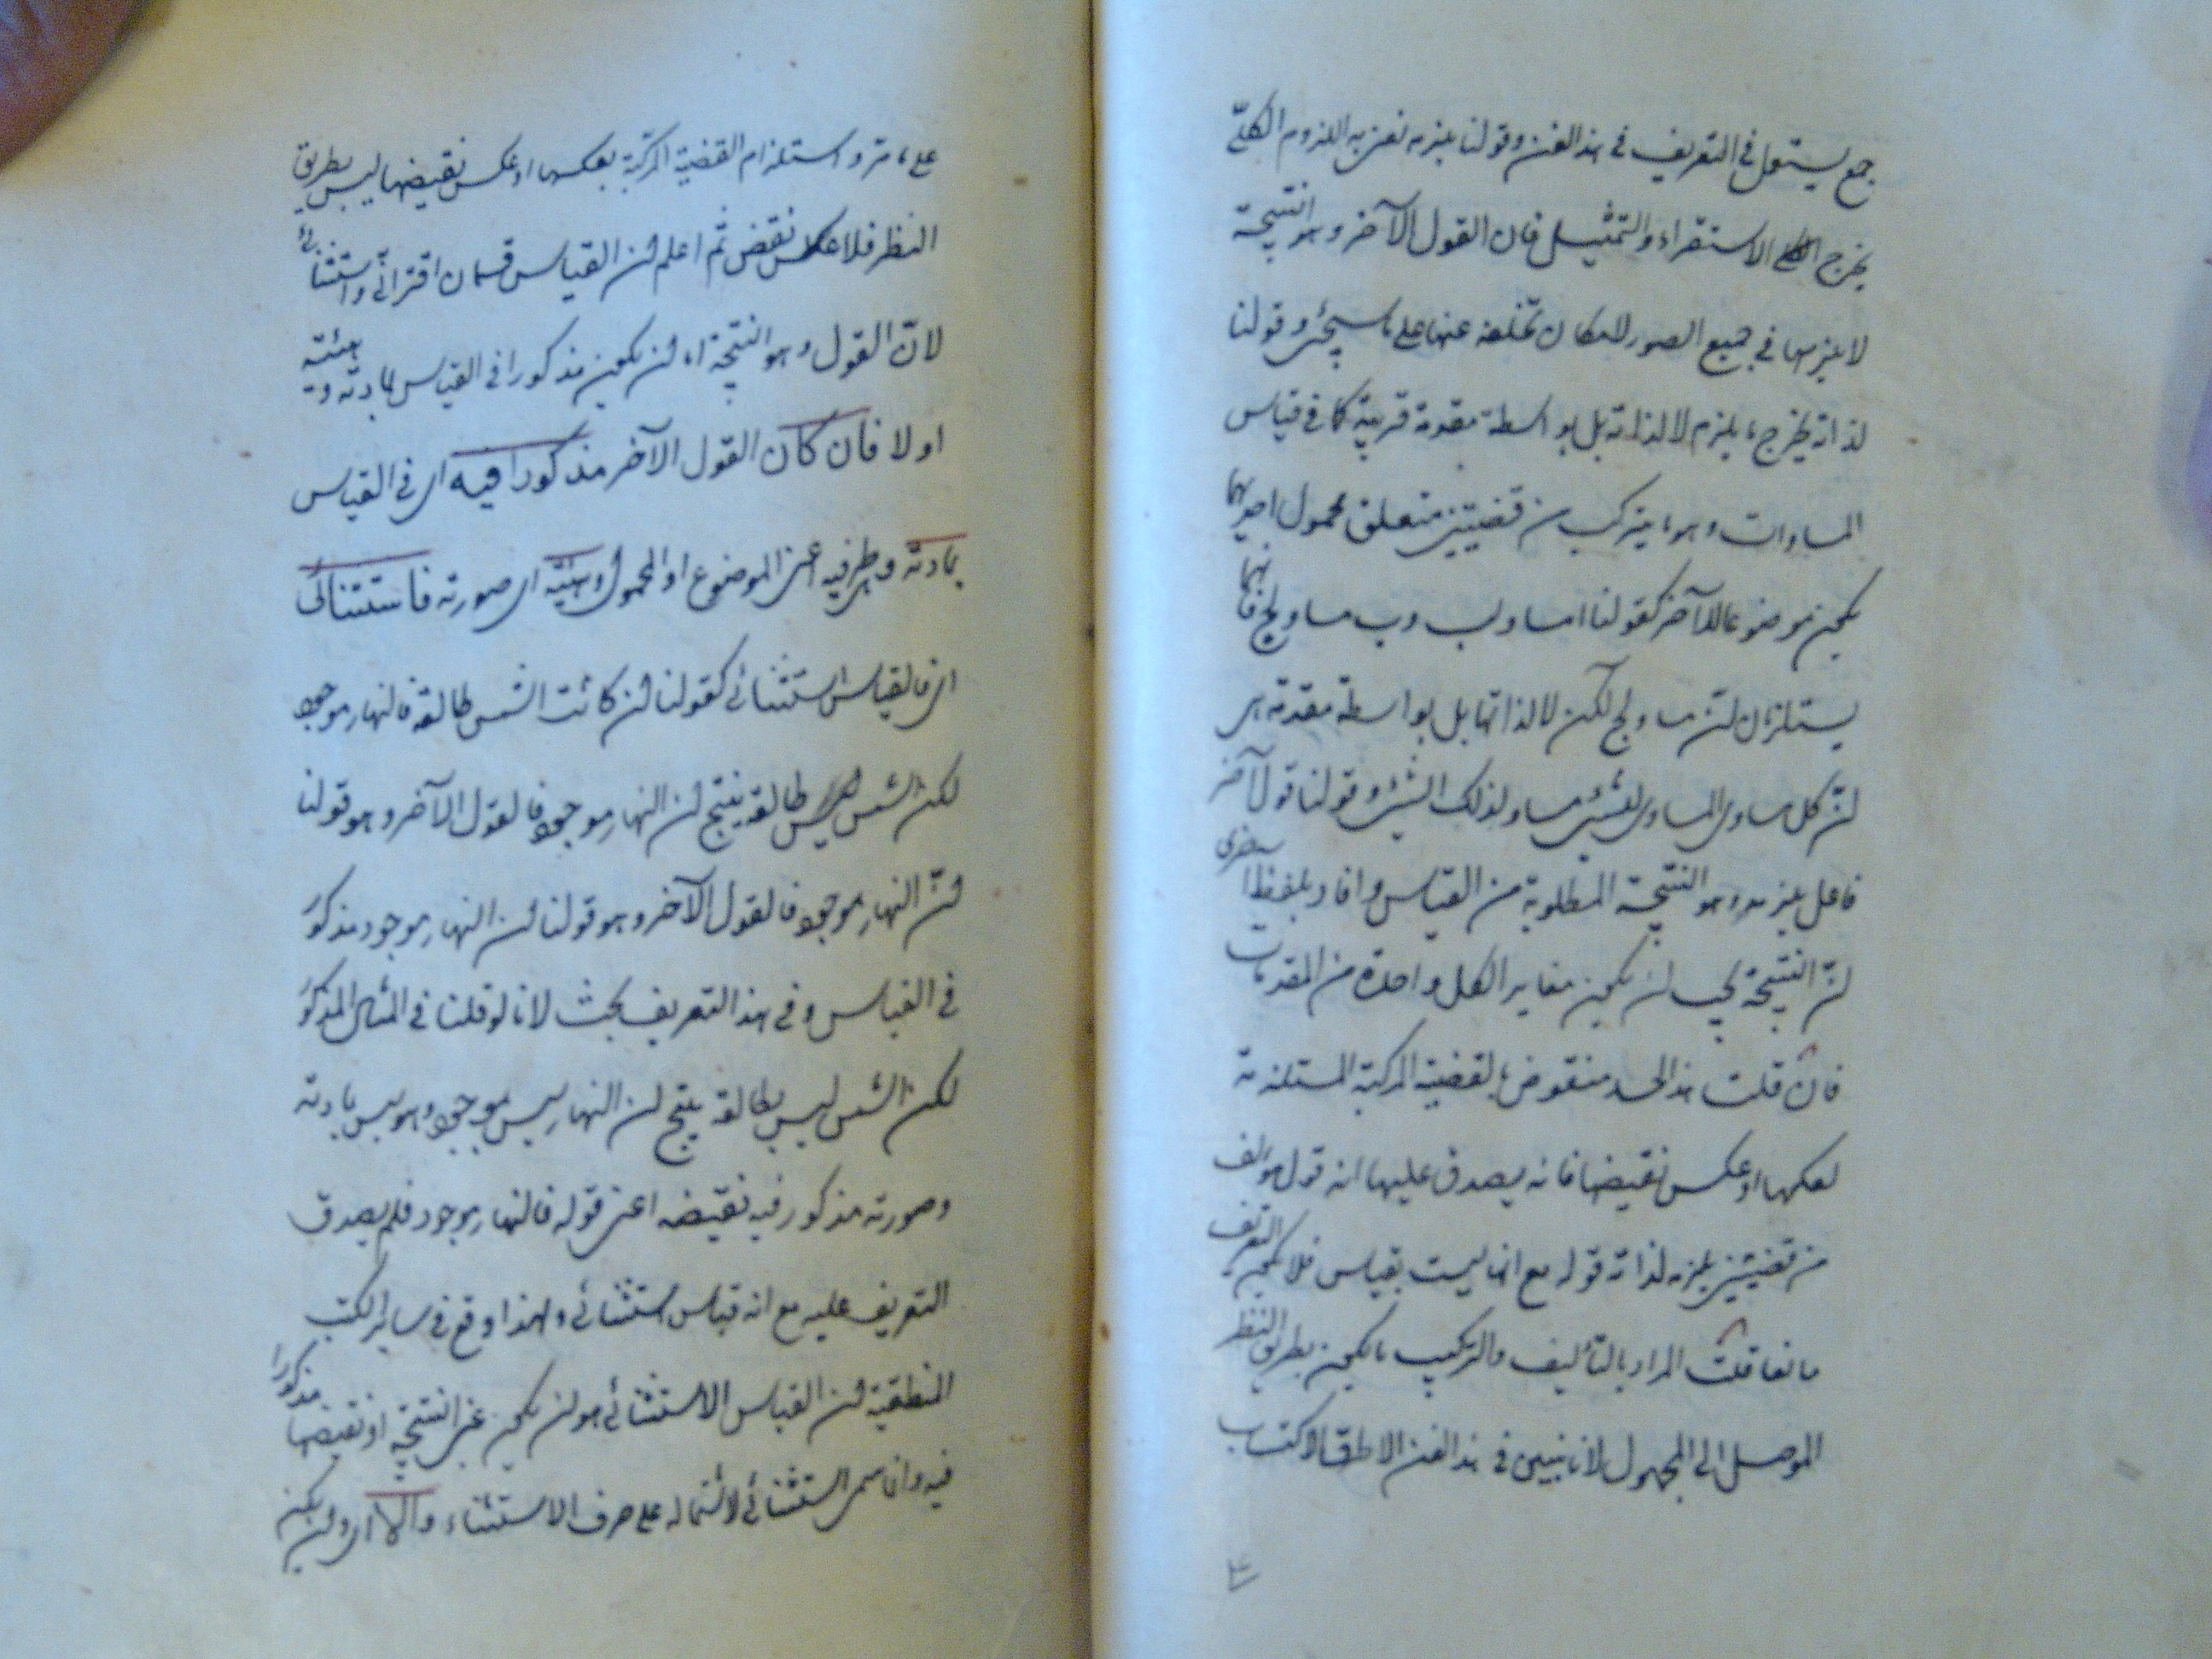 جمع يستعمل في التعريف في هذا الفن وقولنا يلزمه نعني به اللزوم الكلّي
يخرج الاستقراء والتمثيل فان القول الآخر وهو النتيجة
لا يلزمها في جميع الصور لامكان تخلفه عنها على ما سيجئ وقولنا
لذاته يخرج ما يلزم لا لذاته بل بواسطة مقدمة قريبة كما في قياس
المساوات وهو ما يتركب من قضيتين متعلق محمول احديهما
يكون موضوعا للآخر كقولنا ا مساو لب وب مساو لج فانهما
يستلزمان لنّ ا مساو لج لكن لا لذاتهما بل بواسطة مقدمة هى
لنّ كل مساوى المساوى لشئ مساو لذلك الشئ وقولنا قول آخر
فاعل يلزمه وهو النتيجة المطلوبة من القياس وافاد بلفظ
لنّ النتيجة يجب لن يكون مغايرا لكل واحدة من المقدمات
فان قلت هذا الحد منقوض بالقضية المركبة المستلزمة
لعكسها او عكس نقيضها فانه يصدق عليها انه قول مؤلف
من قضيتين يلزمه لذاته قوله مع انها ليست بقياس فلا يكون التعريف
مانعا قلت المراد بالتأليف والتركيب ما يكون بطريق النظر
الموصل الى المجهول لانا نبين في هذا الفن الا طرق الاكتساب
على ما مر واستلزام القضية المركبة بعكسها او عكس نقيضها ليس بطريق
النظر فلا نقض ثم اعلم لن القياس قسمان اقترانيّ واستثنائى
لانّ القول وهو النتيجة اما لن يكون مذكورا في القياس بمادته وهيئته
او لا فان كان القول الآخر مذكورا فيه اى في القياس
بمادته وطرفيه اعنى الموضوع او المحمول وهيئته اى صورته فاستثنائى
اى فالقياس استثنائى كقولنا لن كانت الشمس طالعة فالنهار موجود
لكن الشمس طالعة ينتج لن النهار موجود فالقول الآخر وهو قولنا
لنّ النهار موجود فالقول الآخر وهو قولنا لن النهار موجود مذكور
في القياس وفي هذا التعريف بحث لانا لو قلنا في المثال المذكور
لكن الشمس ليس بطالعة ينتج لن النهار ليس بموجود وهو ليس بمادته
وصورته مذكور فيه نقيضه اعنى قوله فالنهار موجود فلم يصدق
التعريف عليه مع انه قياس استثنائى ولهذا وقع في سائر الكتب
المنطقية لن القياس الاستثنائى هو لن يكون عين النتيجة او نقيضها مذكورا
فيه وانما سمى استثنائى لاشتماله على حرف الاستثناء والّا اى ولن لم يكن